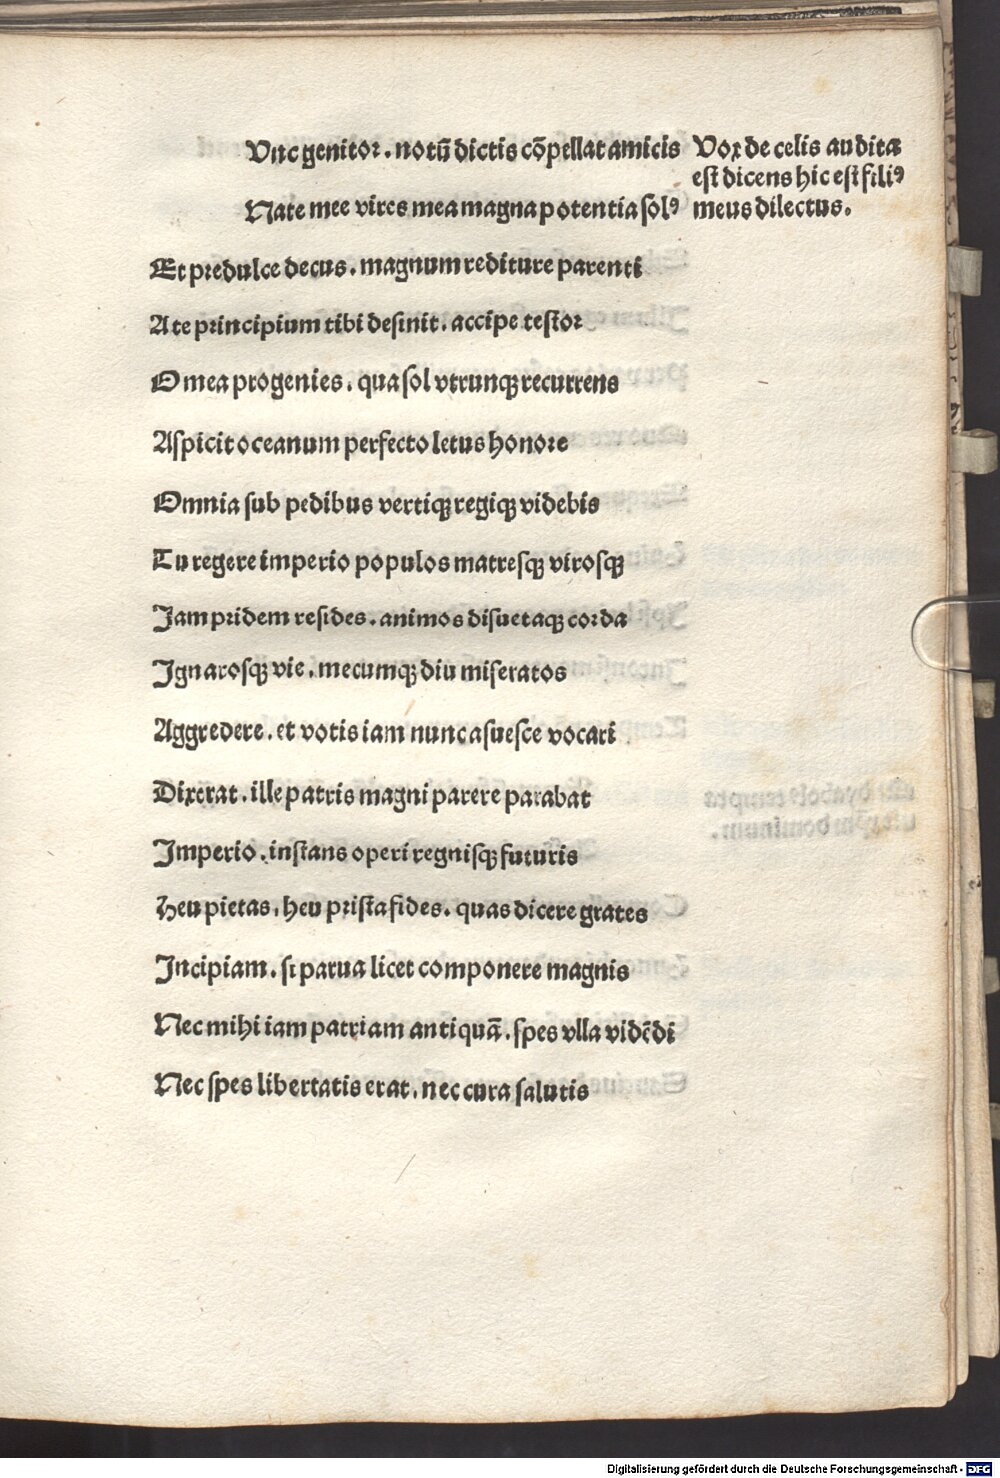 Vnc genitor. notū dictis cōpellat amicis
Nate mee vires mea magna potentia solꝰ
Et predulce decus. magnum rediture parenti
A te principium tibi desinit. accipe testor
O mea progenies. qua sol vtrunqꝫ recurrens
Aspicit oceanum perfecto letus honore
Omnia sub pedibus vertiqꝫ regiqꝫ videbis
Tu regere imperio populos matresqꝫ virosqꝫ
Jam pridem resides. animos disuetaqꝫ corda
Ignarosqꝫ vie. mecumqꝫ diu miseratos
Aggredere. et votis iam nunc asuesce vocari
Dixerat. ille patris magni parere parabat
Imperio. instans operi regnisqꝫ futuris
Heu pietas. heu prista fides. quas dicere grates
Incipiam. si parua licet componere magnis
Nec mihi iam patriam antiquā. spes vlla vidēdi
Nec spes libertatis erat. nec cura salutis
Vox de celis audita
est dicens hic est filiꝰ
meus dilectus.
Digitalisierung gefördert durch die Deutsche Forschungsgemeinschaft - DFG